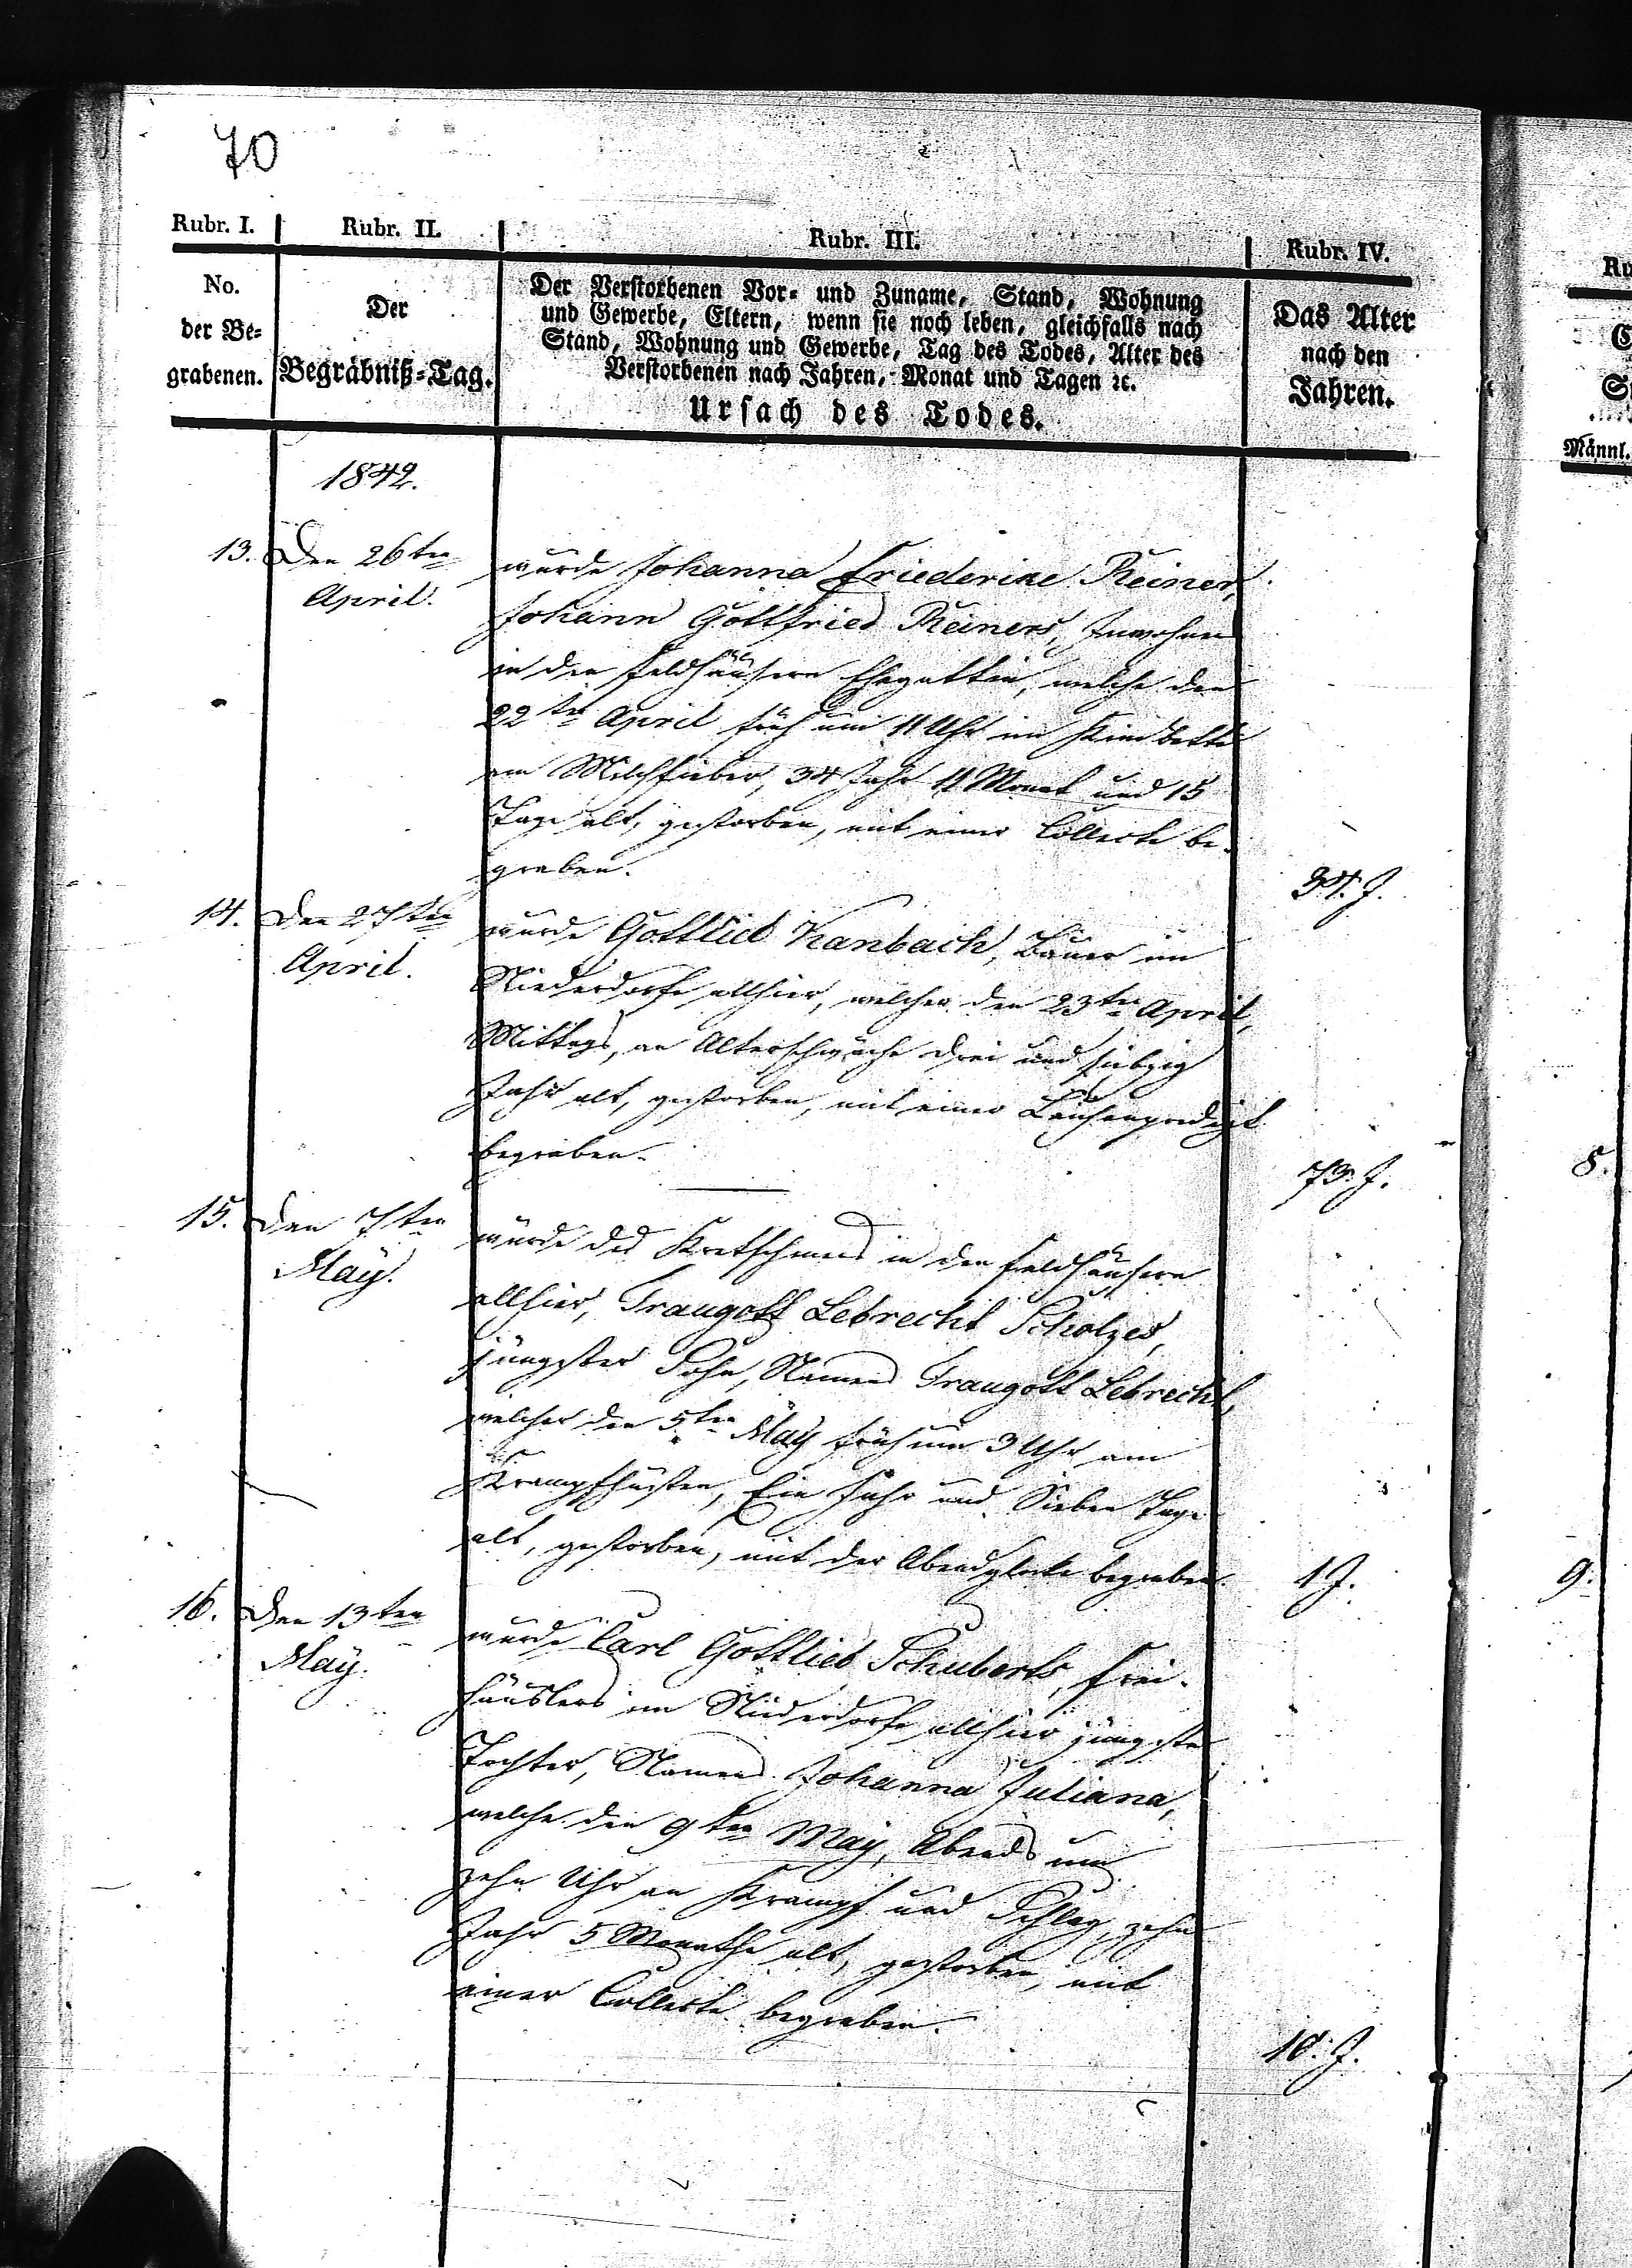 70
Rubr. I. Rubr. II. Rubr. III. Rubr. IV.
No.
der Be-
grabenen.
Der
Begräbniß-Tag.
Der Verstorbenen Vor- und Zuname, Stand, Wohnung
und Gewerbe, Eltern, wenn sie noch leben, gleichfalls nach
Stand, Wohnung und Gewerbe, Tag des Todes, Alter des
Verstorbenen nach Jahren, Monat und Tagen ꝛc.
Ursach des Todes.
Das Alter
nach den
Jahren.
Männl.
1842.
13. Den 26ten
April.
wurde Johanna Friederike Reiner,
Johann Gottfried Reiners, Inwohners
in den Feldhäusern Ehegattin, welche den
22ten April früh um 11 Uhr im Kindbette
am Milchfieber, 34 Jahr 11 Monat und 15
Tage alt, gestorben, mit einer Collecte be-
graben.
34. J.
14. Den 27ten
April.
wurde Gottlieb Kanbach, Bauer im
Niederdorfe allhier, welcher den 23ten April,
Mittags, an Altersschwäche drei und siebzig
Jahr alt, gestorben, mit einer Leichenpredigt
begraben.
73. J.
15. Den 7ten
May.
wurde des Kretschmers in den Feldhäusern
allhier, Traugott Lebrecht Scholzes,
jüngster Sohn, Namens Traugott Lebrecht,
welcher den 5ten May früh um 3 Uhr am
Krampfhusten, Ein Jahr und Sieben Tage
alt, gestorben, mit der Abendglocke begraben.
1 J.
16. Den 13ten
May.
wurde Carl Gottlieb Schuberts, Frei-
häuslers im Niederdorfe allhier jüngste
Tochter, Namens Johanna Juliana,
welche den 9ten May, Abends um
zehn Uhr an Krampf und Schlag, zehn
Jahr 5 Monathe alt, gestorben, mit
einer Collecte begraben.
10. J.
8.
9.